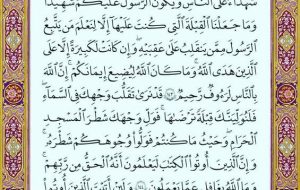 شُهَدَآءَ عَلَى ٱلنَّاسِ وَيَكُونَ ٱلرَّسُولُ عَلَيْكُمْ شَهِيدًا
وَمَا جَعَلْنَا ٱلْقِبْلَةَ ٱلَّتِى كُنتَ عَلَيْهَآ إِلَّا لِنَعْلَمَ مَن يَتَّبِعُ
ٱلرَّسُولَ مِمَّن يَنقَلِبُ عَلَىٰ عَقِبَيْهِ وَإِن كَانَتْ لَكَبِيرَةً إِلَّا عَلَى
ٱلَّذِينَ هَدَى ٱللَّهُ وَمَا كَانَ ٱللَّهُ لِيُضِيعَ إِيمَٰنَكُمْ إِنَّ ٱللَّهَ
بِٱلنَّاسِ لَرَءُوفٌ رَّحِيمٌ ١٤٣ قَدْ نَرَىٰ تَقَلُّبَ وَجْهِكَ فِى ٱلسَّمَآءِ
فَلَنُوَلِّيَنَّكَ قِبْلَةً تَرْضَىٰهَا فَوَلِّ وَجْهَكَ شَطْرَ ٱلْمَسْجِدِ
ٱلْحَرَامِ وَحَيْثُ مَا كُنتُمْ فَوَلُّوا۟ وُجُوهَكُمْ شَطْرَهُۥ
وَإِنَّ ٱلَّذِينَ أُوتُوا۟ ٱلْكِتَٰبَ لَيَعْلَمُونَ أَنَّهُ ٱلْحَقُّ مِن رَّبِّهِمْ
وَمَا ٱللَّهُ بِغَٰفِلٍ عَمَّا يَعْمَلُونَ ١٤٤ وَلَئِنْ أَتَيْتَ ٱلَّذِينَ أُوتُوا۟